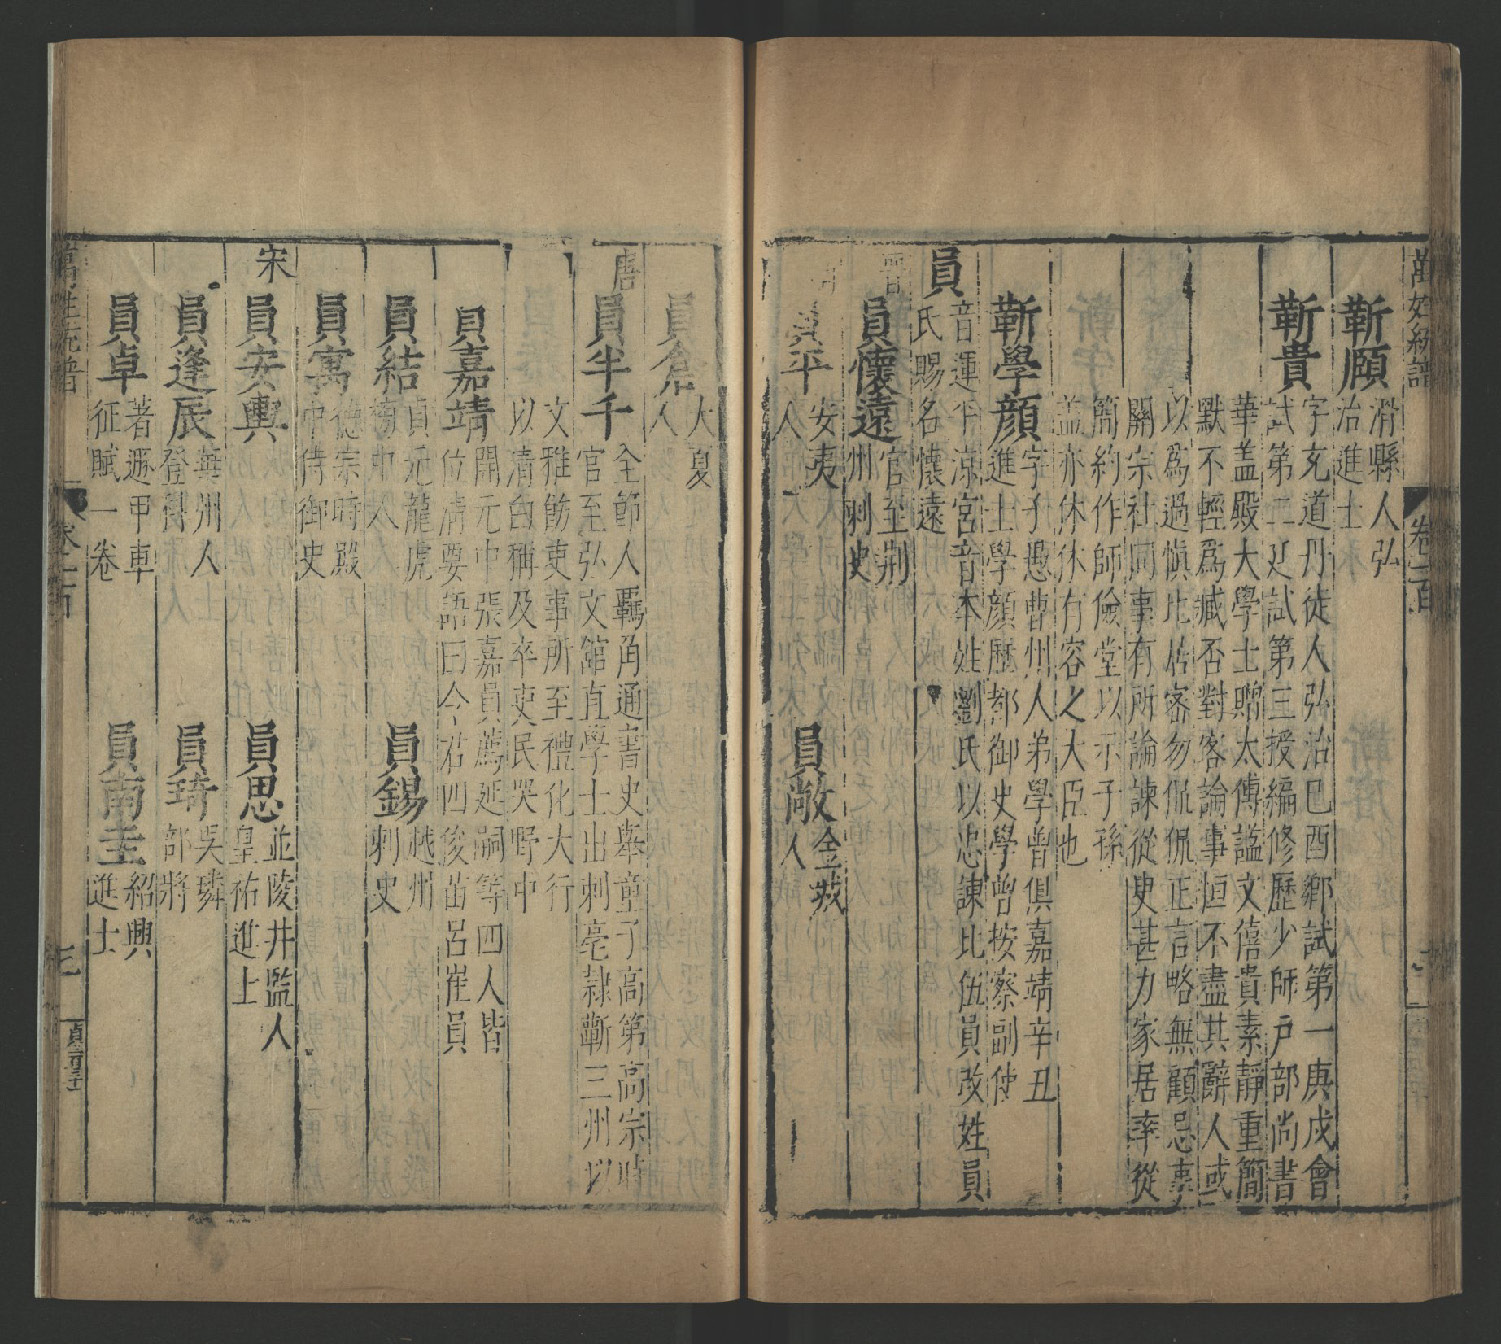 萬姓統譜
卷一百
靳頤
滑縣人弘
治進士
靳貴
字充道丹徒人弘治己酉鄉試第一庚戌會
試第二廷試第三授編修歷少師戶部尚書
華蓋殿大學士贈太傅謚文僖貴素靜重簡
默不輕爲臧否對客論事恒不盡其辭人或
以爲過愼比居密勿侃侃正言略無顧忌事
關宗社同事有所論諫從叟甚力家居率從
簡約作師儉堂以示子孫
蓋亦休休有容之大臣也
靳學顔
字子愚曹州人弟學曾俱嘉靖辛丑
進士學顔歷都御史學曾按察副使
員
音運平涼宮音本姓劉氏以忠諫比伍員改姓員
氏賜名懷遠
晉
員懷遠
官至荆
州刺史
員平
安夷
人
員敞
金城
人
員倉
大夏
人
唐
員半千
全節人羈角通書史舉童子高第高宗時
官至弘文舘直學士出刺亳隷蘄三州以
文雅飭吏事所至禮化大行
以清白稱及卒吏民哭野中
員嘉靖
開元中張嘉貟薦延嗣等四人皆
位清要語曰令君四俊苗呂崔員
員結
貞元龍虎
榜中人
員錫
越州
刺史
員寓
德宗時殿
中侍御史
宋
員安輿
員思
並陵井監人
皇祐進士
員逢辰
華州人
登科
員琦
吳璘
部將
員卓
著遁甲車
征賦一卷
員南圭
紹興
進士
萬姓統譜
卷一百